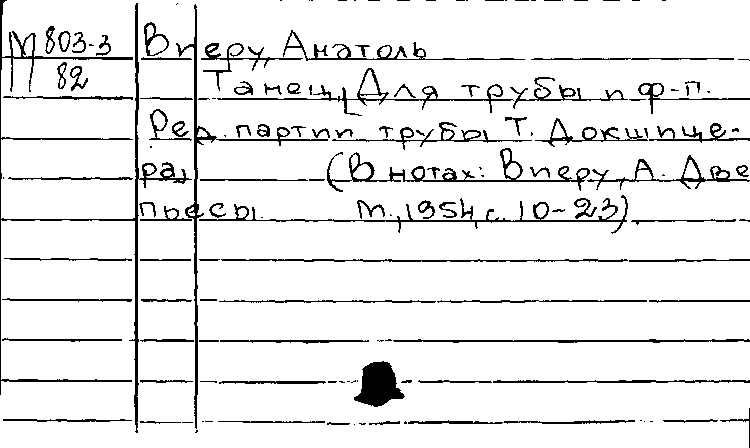 М 803-3 Виеру, Анатоль
82 Танец, [Для трубы и ф-п.
Ред. партии трубы Т. Докшице-
ра] (В нотах: Виеру, А. Две
пьесы. М., 1954, с. 10-23).